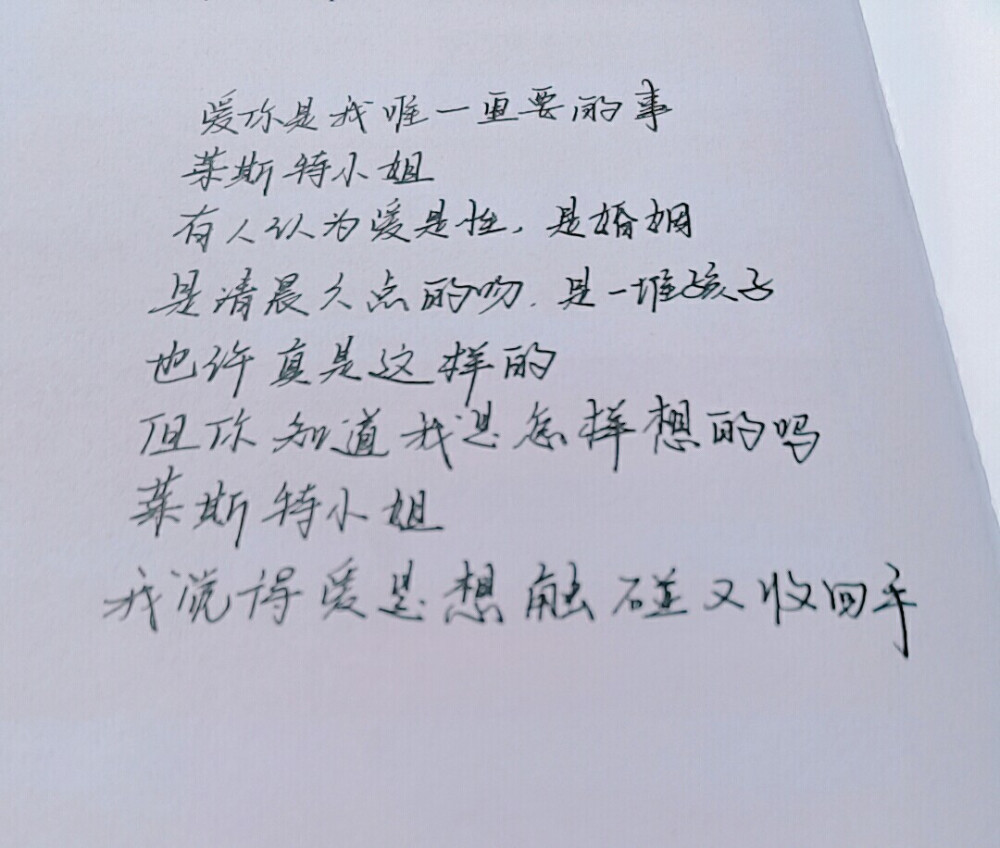 爱你是我唯一重要的事
莱斯特小姐
有人认为爱是性,是婚姻
是清晨六点的吻.是一堆孩子
也许真是这样的
但你知道我是怎样想的吗
莱斯特小姐
我觉得爱是想触碰又收回手